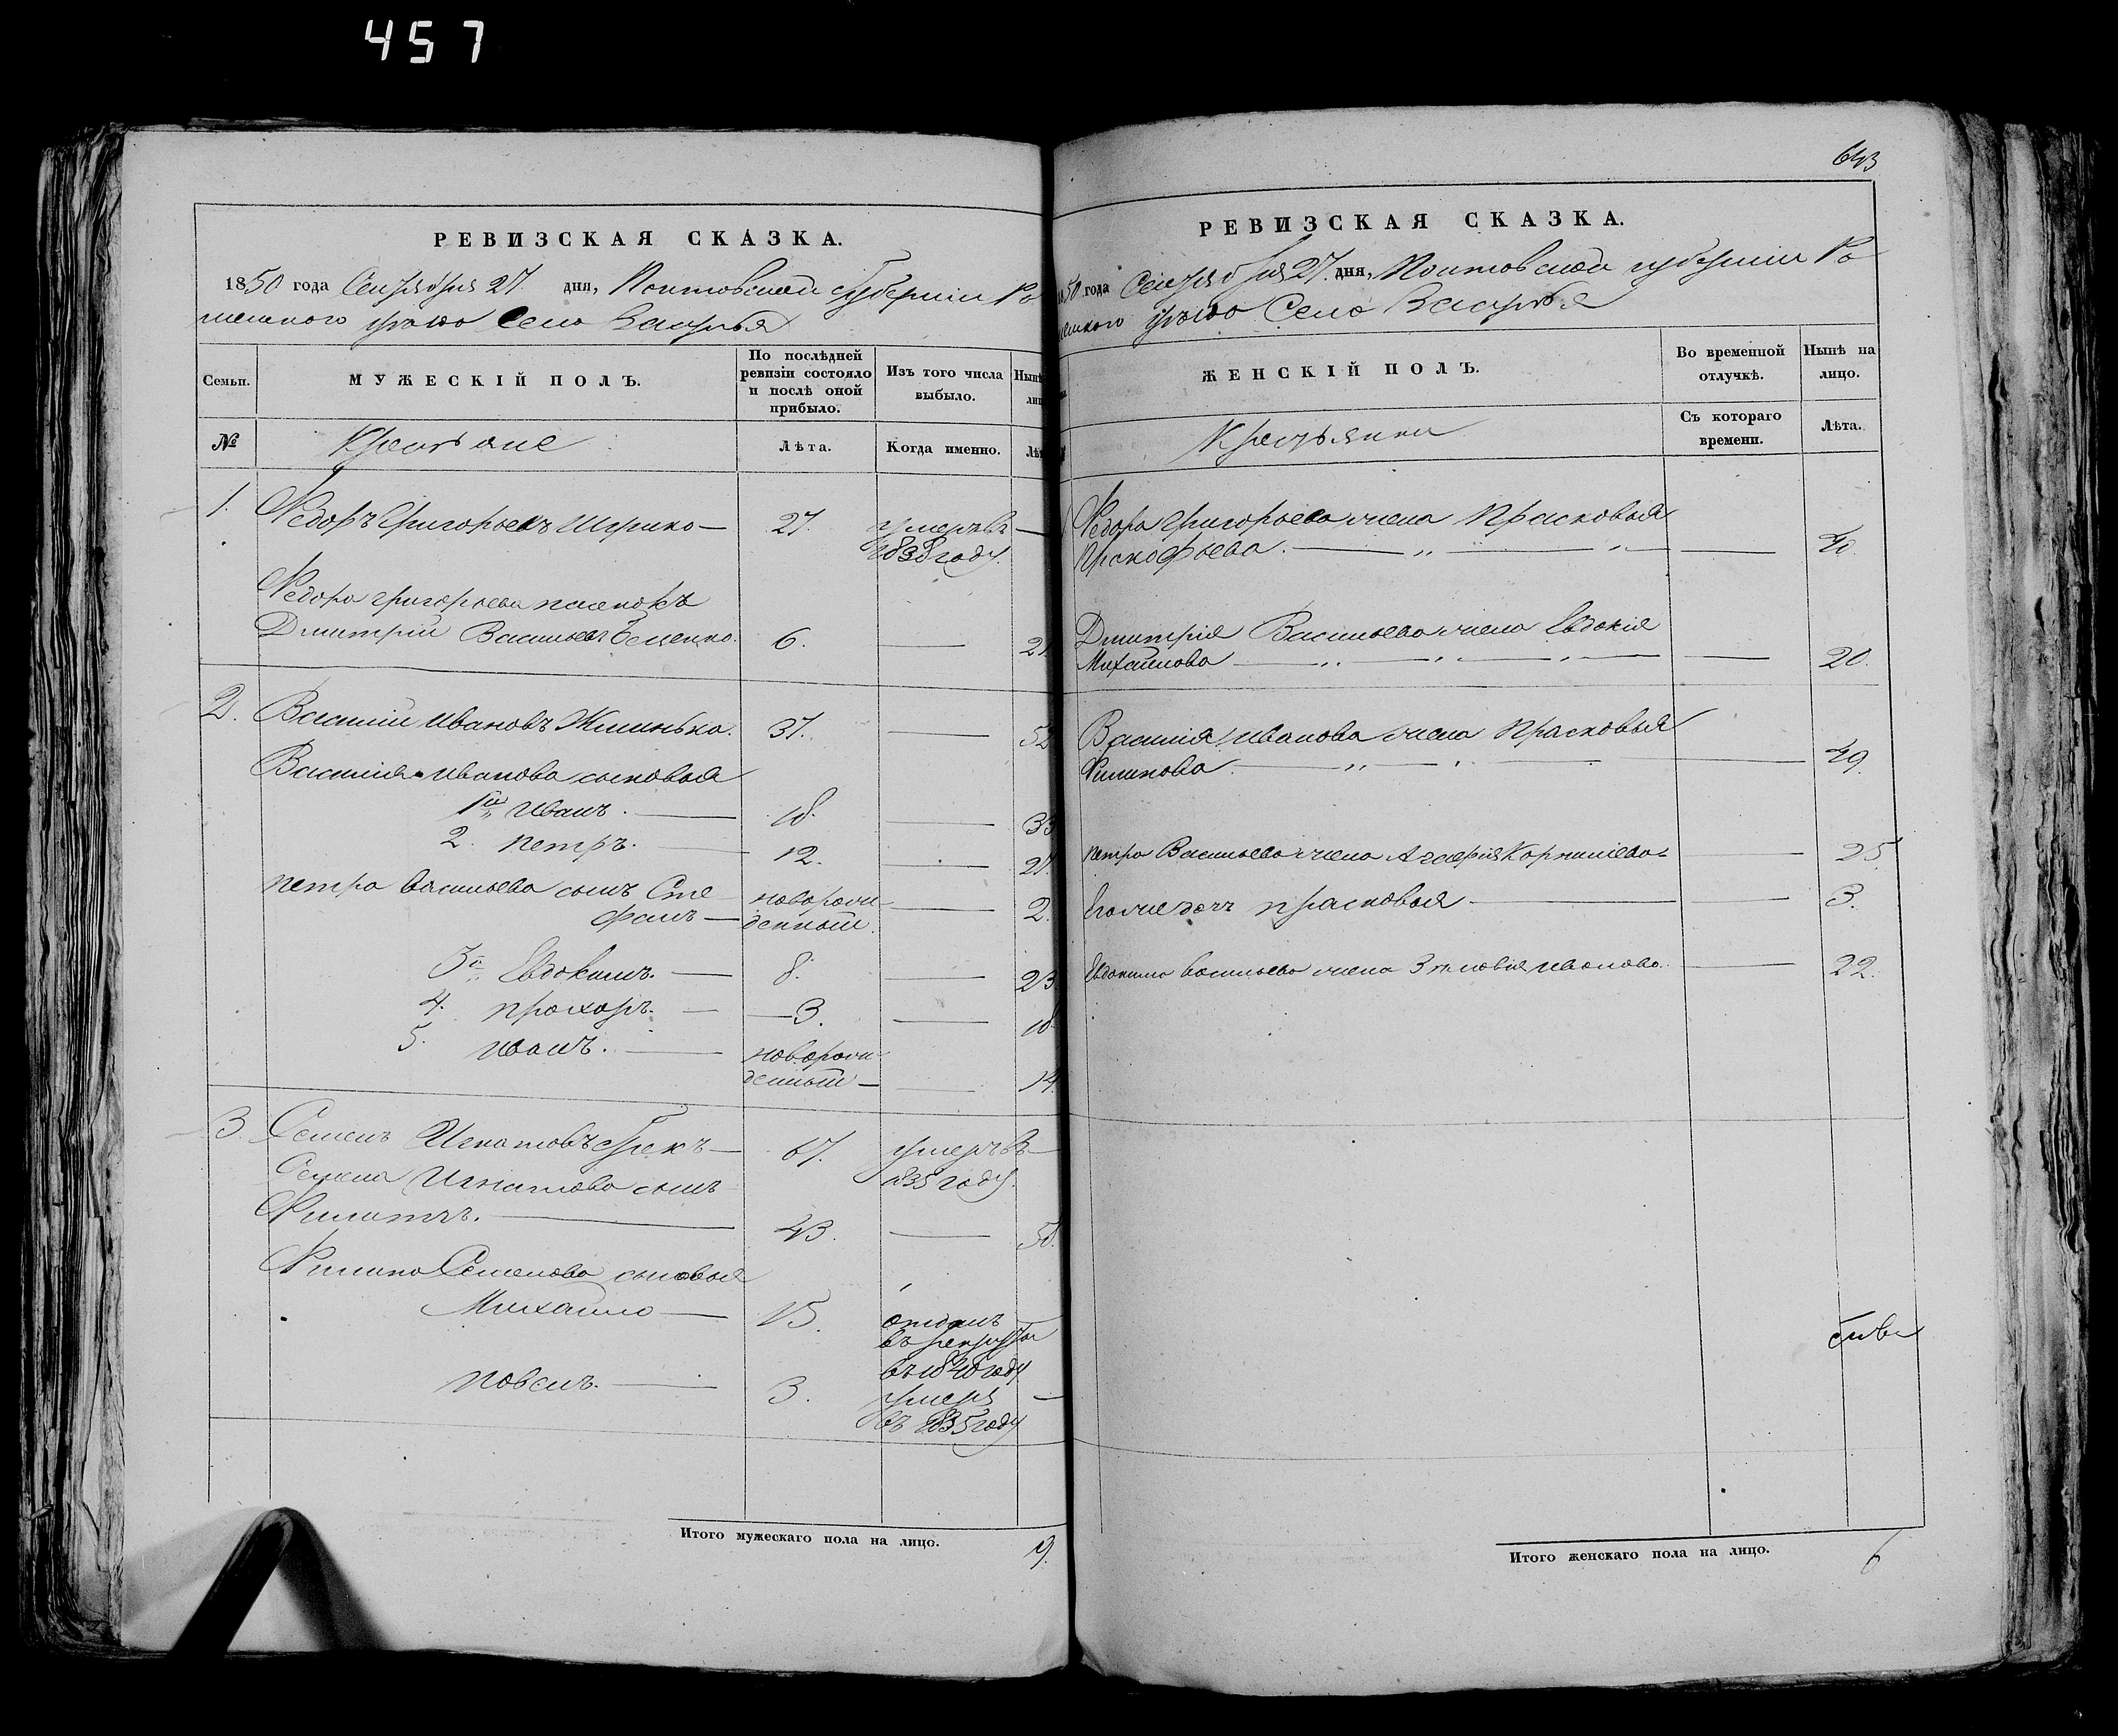 457
РЕВИЗСКАЯ СКАЗКА.
1850 года Сентября 27 дня, Полтавской губернии Ро
менского уезда Село
Семьи.
МУЖЕСКІЙ ПОЛЪ.
По послѣдней
ревизіи состояло
и послѣ оной
прибыло.
Изъ того числа
выбыло.
Нынѣ
№
Крестьяне
Лѣта.
Когда именно.
1. Федоръ Григорьевъ 27. умеръ въ —
1838 году.
Федора Григорьева пасенокъ
Дмитрій Васильевъ 6. — 21
2. Василій Ивановъ 37. — 52
Василія Иванова сыновья
1й Иванъ. — 18. — 33
2. Петръ. — 12. — 27.
Петра Васильева сынъ Сте
фанъ — новорож
денный. — 2.
3й Евдокимъ. — 8. — 23
4. Прохоръ. — 3. — 18.
5. Иванъ. — новорож
денный — — 14.
3 Семенъ Игнатовъ Грекъ — 67. умеръ въ —
1835 году.
Семена Игнатова сынъ
43. — 58.
Семенова сыновья
Михайло — 15. отданъ —
въ рекруты
въ 1840 году
3. умеръ —
въ 1835 году
Итого мужескаго пола на лицо. 9.
643
РЕВИЗСКАЯ СКАЗКА.
50 года Сентября 27. дня, Полтавской губерніи Ро
менского уезда Село
ЖЕНСКІЙ ПОЛЪ.
Во временной
отлучкѣ.
Нынѣ на
лицо.
Крестьянки
Съ котораго
времени.
Лѣта.
Федора Григорьева жена Прасковья
Прокофьева. — „ — „ — — 40.
Дмитрія Васильева жена Евдокія
Михайлова — „ — „ — „ — — 20.
Василія Иванова жена Прасковья
— „ — „ — — 49.
Петра Васильева жена Агафія Корниліева — 25
Егоже дочь Прасковья — — 3.
Евдокима Васильева жена Иванова. — 22.
Итого женскаго пола на лицо. 6